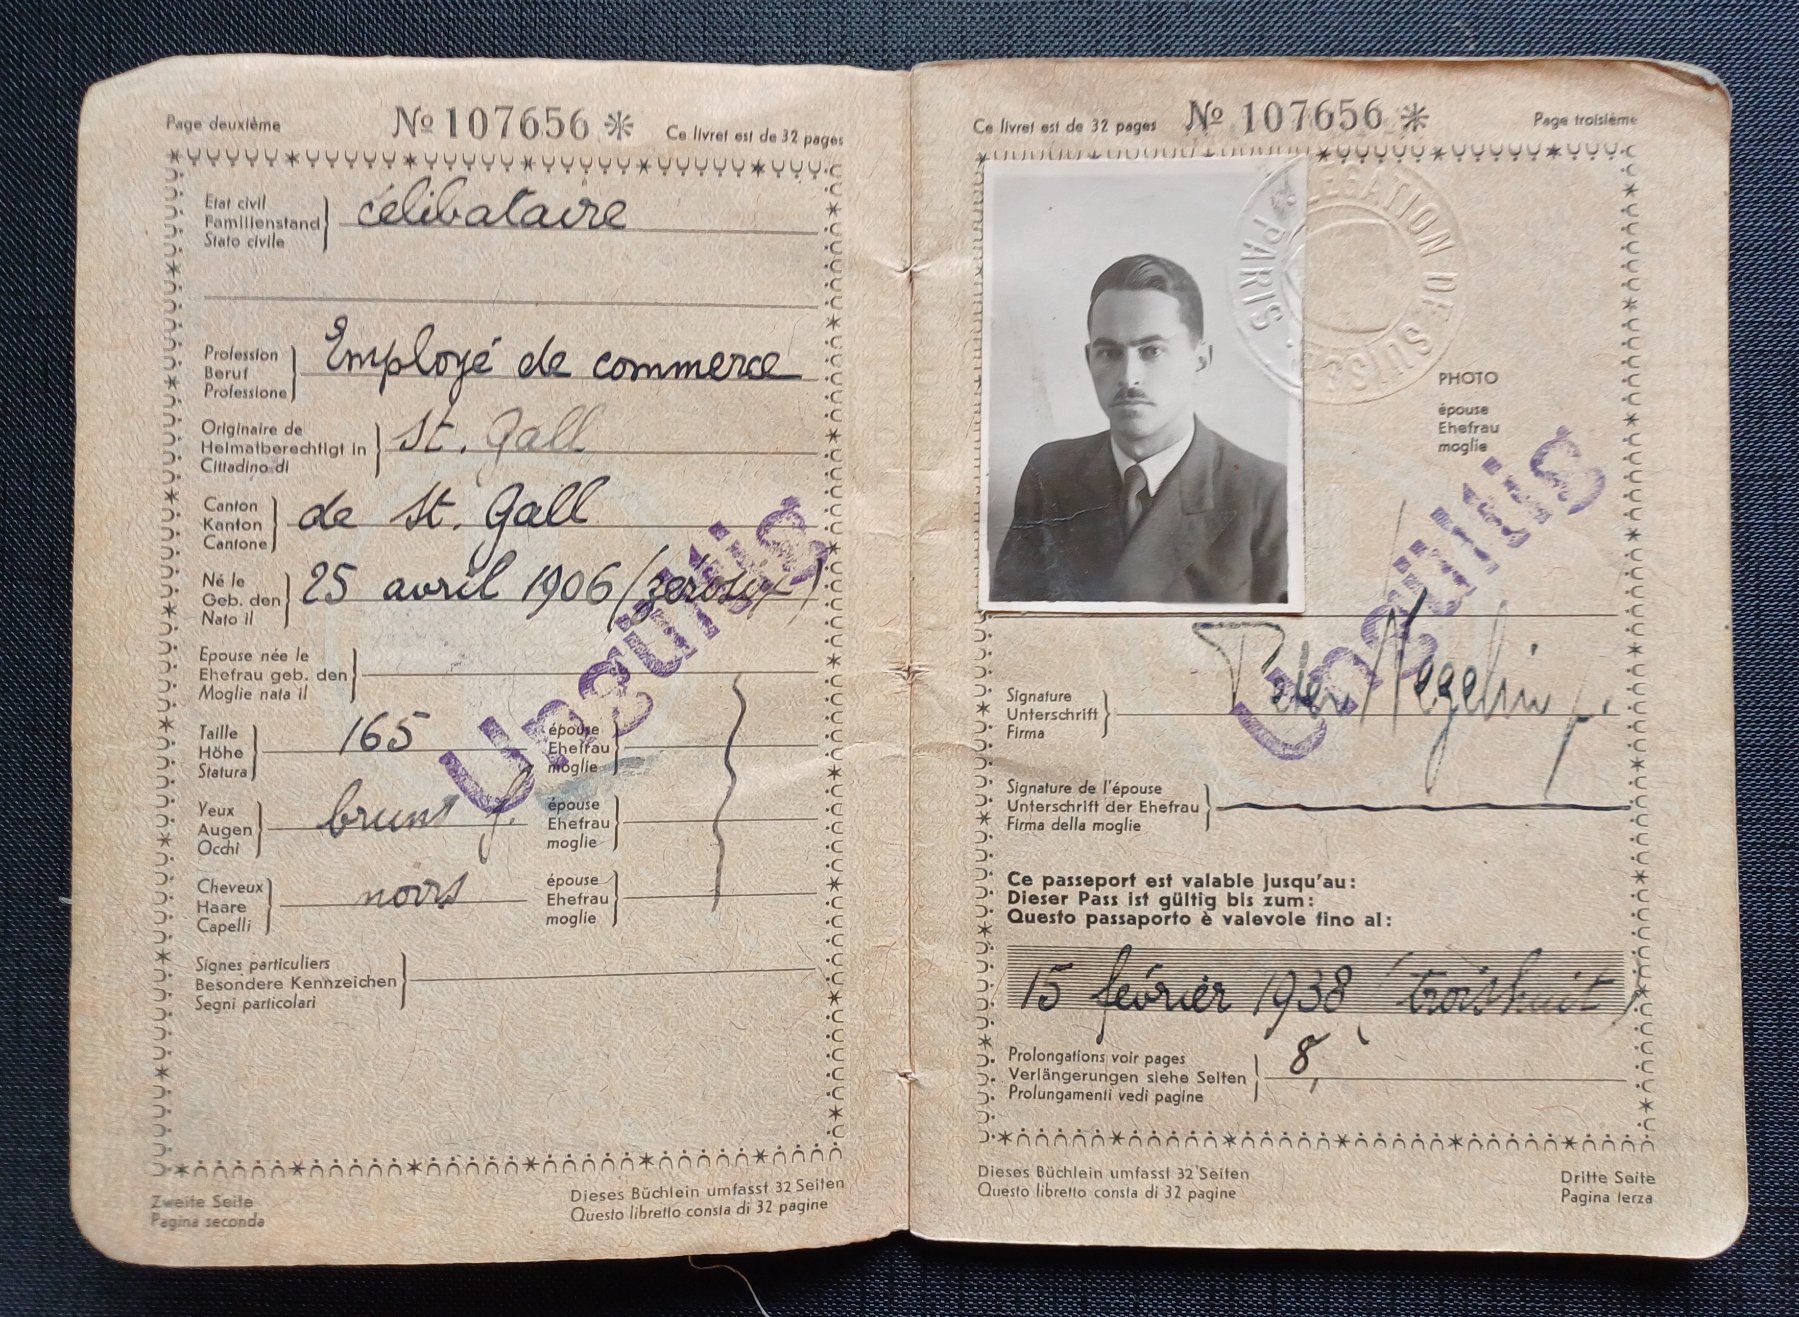 Page deuxième
№ 107656 *
Ce livret est de 32 pages
Etat civil
Familienstand
Stato civile
célibataire
Profession
Beruf
Professione
Employé de commerce
Originaire de
Heimatberechtigt in
Cittadino di
St. Gall
Canton
Kanton
Cantone
de St. Gall
Né le
Geb. den
Nato il
25 avril 1906 (zérosix)
Epouse née le
Ehefrau geb. den
Moglie nata il
Taille
Höhe
Statura
165
épouse
Ehefrau
moglie
Yeux
Augen
Occhi
bruns f.
épouse
Ehefrau
moglie
Cheveux
Haare
Capelli
noirs
épouse
Ehefrau
moglie
Signes particuliers
Besondere Kennzeichen
Segni particolari
Ungültig
Zweite Seite
Pagina seconda
Dieses Büchlein umfasst 32 Seiten
Questo libretto consta di 32 pagine
Ce livret est de 32 pages
№ 107656 *
Page troisième
LEGATION DE SUISSE
PARIS
PHOTO
épouse
Ehefrau
moglie
Ungültig
Signature
Unterschrift
Firma
Peter Hegelin
Signature de l'épouse
Unterschrift der Ehefrau
Firma della moglie
Ce passeport est valable jusqu'au:
Dieser Pass ist gültig bis zum:
Questo passaporto è valevole fino al:
15 février 1938 (troishuit)
Prolongations voir pages
Verlängerungen siehe Seiten
Prolungamenti vedi pagine
8,
Dieses Büchlein umfasst 32 Seiten
Questo libretto consta di 32 pagine
Dritte Seite
Pagina terza